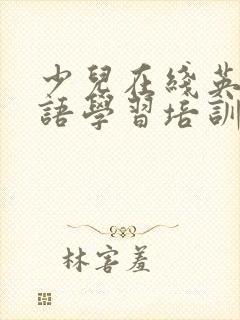 少兒在綫英
語學習培訓
林害羞